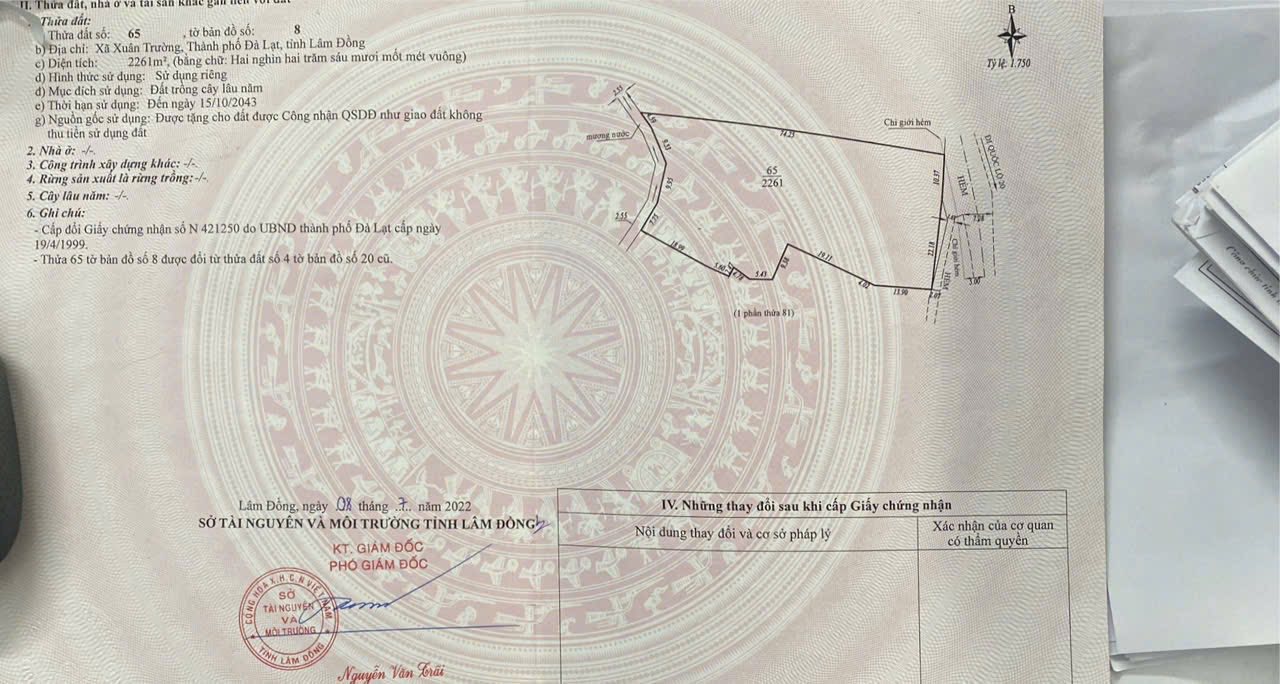 II. Thửa đất, nhà ở và tài sản khác gắn liền với đất
. Thửa đất:
Thửa đất số: 65 , tờ bản đồ số: 8
b) Địa chỉ: Xã Xuân Trường, Thành phố Đà Lạt, tỉnh Lâm Đồng
c) Diện tích: 2261m², (bằng chữ: Hai nghìn hai trăm sáu mươi mốt mét vuông)
d) Hình thức sử dụng: Sử dụng riêng
đ) Mục đích sử dụng: Đất trồng cây lâu năm
e) Thời hạn sử dụng: Đến ngày 15/10/2043
g) Nguồn gốc sử dụng: Được tặng cho đất được Công nhận QSDĐ như giao đất không
thu tiền sử dụng đất
2. Nhà ở: -/-.
3. Công trình xây dựng khác: -/-.
4. Rừng sản xuất là rừng trồng: -/-.
5. Cây lâu năm: -/-.
6. Ghi chú:
- Cấp đổi Giấy chứng nhận số N 421250 do UBND thành phố Đà Lạt cấp ngày
19/4/1999.
- Thửa 65 tờ bản đồ số 8 được đổi từ thửa đất số 4 tờ bản đồ số 20 cũ.
B
Tỷ lệ: 1.750
2.55
4.59
mương nước
9.33
74.23
Chỉ giới hẻm
ĐI QUỐC LỘ 20
65
2261
10.37
HẺM
9.95
2.55
7.28
22.18
Chỉ giới hẻm
HẺM
3.00
18.99
5.60
4.78
5.43
9.38
19.11
4.02
13.90
2.07
(1 phần thửa 81)
Lâm Đồng, ngày 08 tháng 7. năm 2022
SỞ TÀI NGUYÊN VÀ MÔI TRƯỜNG TỈNH LÂM ĐỒNG
KT. GIÁM ĐỐC
PHÓ GIÁM ĐỐC
CỘNG HÒA X.H.C.N VIỆT NAM
SỞ
TÀI NGUYÊN
VÀ
MÔI TRƯỜNG
TỈNH LÂM ĐỒNG
Nguyễn Văn Trãi
IV. Những thay đổi sau khi cấp Giấy chứng nhận
Nội dung thay đổi và cơ sở pháp lý
Xác nhận của cơ quan
có thẩm quyền
Công chức tỉnh